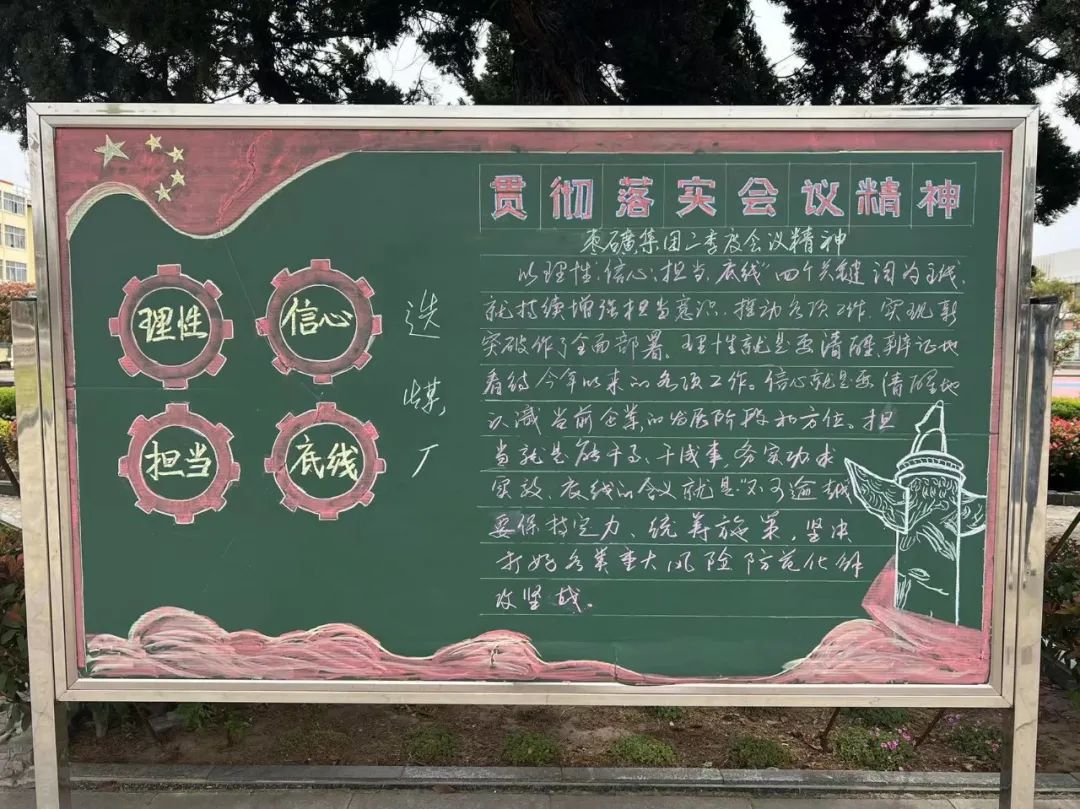 贯彻落实会议精神
枣矿集团二季度会议精神
以"理性、信心、担当、底线"四个关键词为主线,
就持续增强担当意识、推动各项工作、实现新
突破作了全面部署。理性就是要清醒、辩证地
看待今年以来的各项工作。信心就是要清醒地
认识当前企业的发展阶段和方位。担
当就是能干事、干成事,务实功求
实效、底线的含义就是"不可逾越"
要保持定力、统筹施策,坚决
打好各类重大风险防范化解
攻坚战。
理性
信心
担当
底线
选
煤
厂